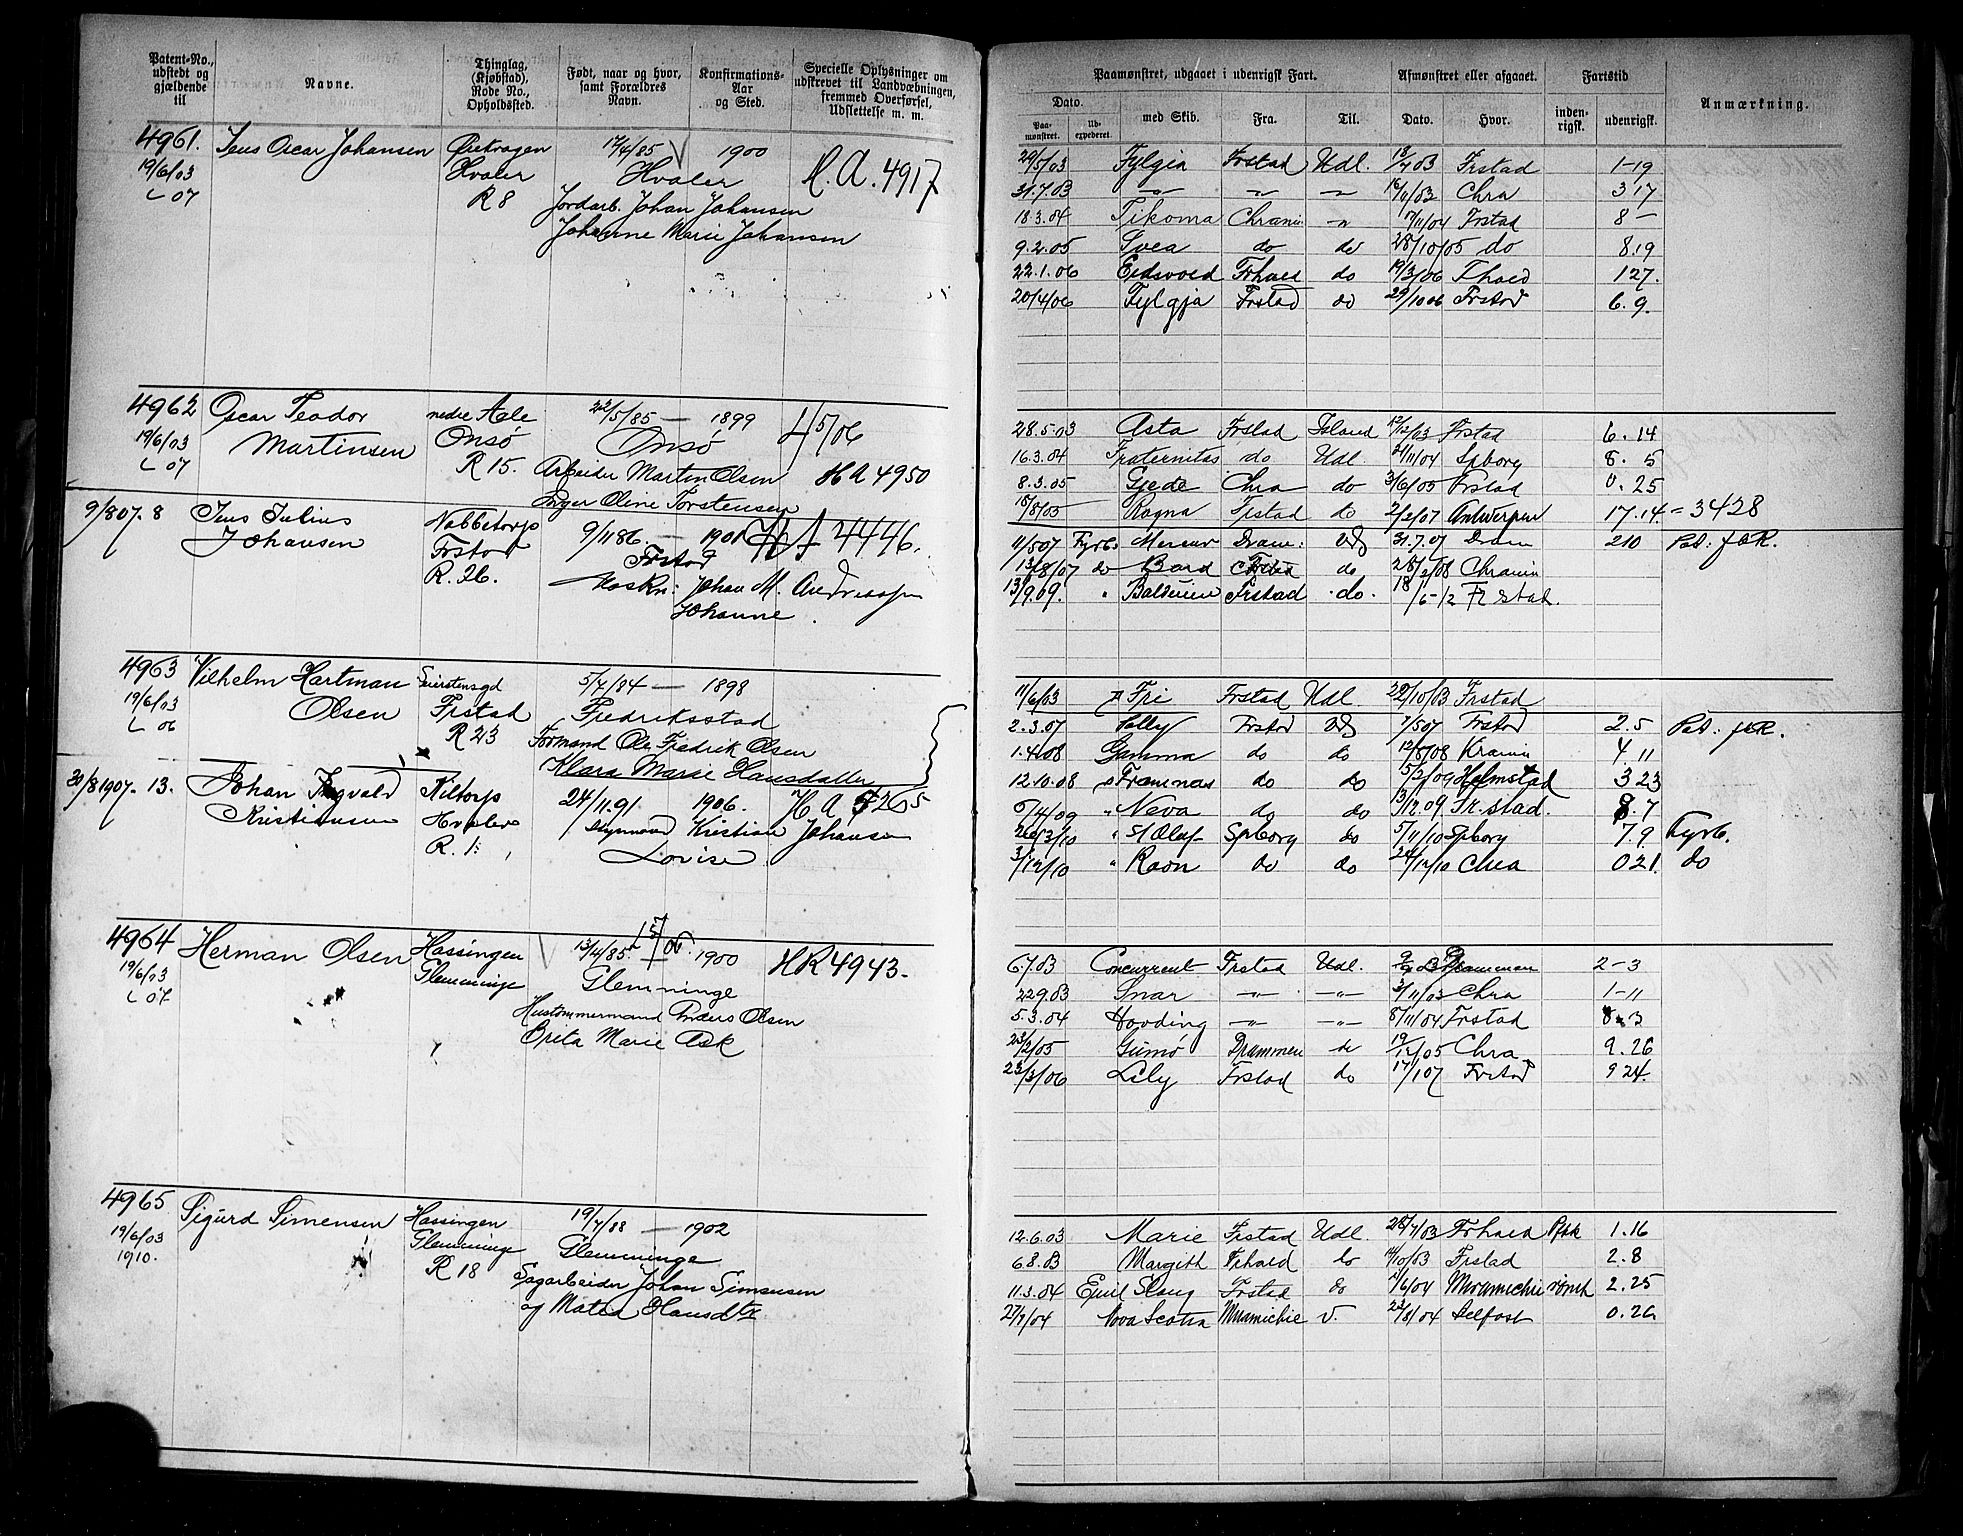 Patent-No., udstedt og gjældende til
Navne.
Thinglag, (Kjøbstad), Rode No., Opholdssted.
Født, naar og hvor, samt Forældres Navn.
Konfirmations- Aar og Sted.
Specielle Oplysninger om udskrevet til Landvæbningen, fremmed Overførsel, Udslettelse m. m.
4961. Jens Oscar Johansen
Hvaler 17/4/85 1900 H.A. 4917
19/6/03 Hvaler
L 07 R 8 Jordarb. Johan Johansen
Johanne Marie Johansen
4962 Oscar Teodor nedre Aale 22/5/85 — 1899 4/5/06
19/6/03 Martinsen Onsø Onsø
L 07 R 15. Arbeider Martin Olsen HA 4950
Inger Oline Torstensen
9/8 07. 8 Jens Julius Nabbetorp 9/11 86. — 1901 4446.
Johansen Frstad Frstad
R. 26. Maskn: Johan M. Andreassen
Johanne
4963 Vilhelm Hartman 5/7/84 — 1898
19/6/03 Olsen Frstad Fredriksstad
L 06 R 23 Formand Ole Fredrik Olsen
Klara Marie Hansdatter
30/8 1907. 13. Johan Ingvald Kiltorp 24/11.91. 1906. H A 5265
Kristiansen Hvaler Kristian Johansen
R. 1. Lovise
4964 Herman Olsen Hassingen 13/4/85 1900 HR 4943.
19/6/03 Glemminge Glemminge
L 07 Hustømmermand Anders Olsen
Brita Marie Ask
4965 Sigurd Simensen Hassingen 19/7/88 — 1902
19/6/03 Glemminge Glemminge
1910. R 18 Sagarbeider Johan Simensen
og Matea Hansdtr
Paamønstret, udgaaet i udenrigsk Fart.
Afmønstret eller afgaaet.
Fartstid
Anmærkning.
Dato. med Skib. Fra. Til. Dato. Hvor. inden- rigsk. udenrigsk.
Paa- mønstret. Ud- expederet.
29/5/03 Fylgia Frstad Udl. 18/7 03 Frstad 1-19
31.7.03 —„— —„— —„— 16/11/03 Chra 3 17
18.3.04 Tikoma Chrania —„— 17/11/04 Frstad 8 —
9.2.05 Svea do do 28/10/05 do 8.19
22.1.06 Eidsvold Frhald do 19/3/06 Fhald 1 27.
20/4/06 Fylgja Frstad do 29/10 06 Frstad 6. 9.
28.5.03 Asta Frstad Island 12/12/03 Frstad 6. 14
16.3.04 Fraternitas do Udl. 21/11/04 Spborg 8. 5
8.3.05 Gjede Chra do 3/6/05 Frstad 0. 25
15/8/05 Ragna Frstad do 2/2/07 Antwerpen 17.14. = 3428
11/5 07 Fyrb. Mercur Dram: Udl 31.7.07 Dram 2 10
13/8/07 do Bard do 28/2/08 Chrania
13/9.09. „ Balduin Frstad do. 18/5-12 Frstad.
11/6/03 Fri Frstad Udl. 22/10/03 Frstad
2.3.07 Sally Frstad Udl 7/5 07 Frstad 2.5
1.4.08 Gamma do do 12/8/08 Krania 4 11
12.10.08 Framnas do do 5/2/09 Helmstad 3 23
6/4/09 „ Neva do do 3/12.09 Fr.stad. 8. 7
26/3/10 „ St Olaf Spborg do 5/11/10 Spborg 7. 9 Fyrb.
3/12/10 „ Ravn do do 24/12/10 Chra 0 21. do
6.7.03 Concurrent Frstad Udl. Drammen 2 - 3
22.9.03 Snar —„— —„— 3/11/03 Chra 1-11
5.3.04 Hovding —„— —„— 8/11/04 Frstad 8. 3
23/2/05 Gumø Drammen do 19/12/05 Chra 9. 26
23/3/06 Lily Frstad do 17/1 07 Frstad 9 24.
12.6.03 Marie Frstad Udl. 28/7/03 Frhald 1. 16
6.8.03 Margith Frhald do 14/10/03 Frstad 2. 8
11.3.04 Emil Stang Frstad do 11/6/04 Miramichie rømt 2. 25
27/7/04 Nova Scotia Miramichie v. 22/8/04 Belfast 0. 26